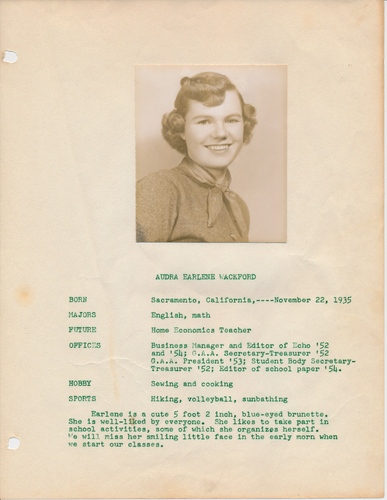 AUDRA EARLENE WACKFORD
BORN Sacramento, California,----November 22, 1935
MAJORS English, math
FUTURE Home Economics Teacher
OFFICES Business Manager and Editor of Echo '52
and '54; G.A.A. Secretary-Treasurer '52
G.A.A. President '53; Student Body Secretary-
Treasurer '52; Editor of school paper '54.
HOBBY Sewing and cooking
SPORTS Hiking, volleyball, sunbathing
Earlene is a cute 5 foot 2 inch, blue-eyed brunette.
She is well-liked by everyone. She likes to take part in
school activities, some of which she organizes herself.
We will miss her smiling little face in the early morn when
we start our classes.